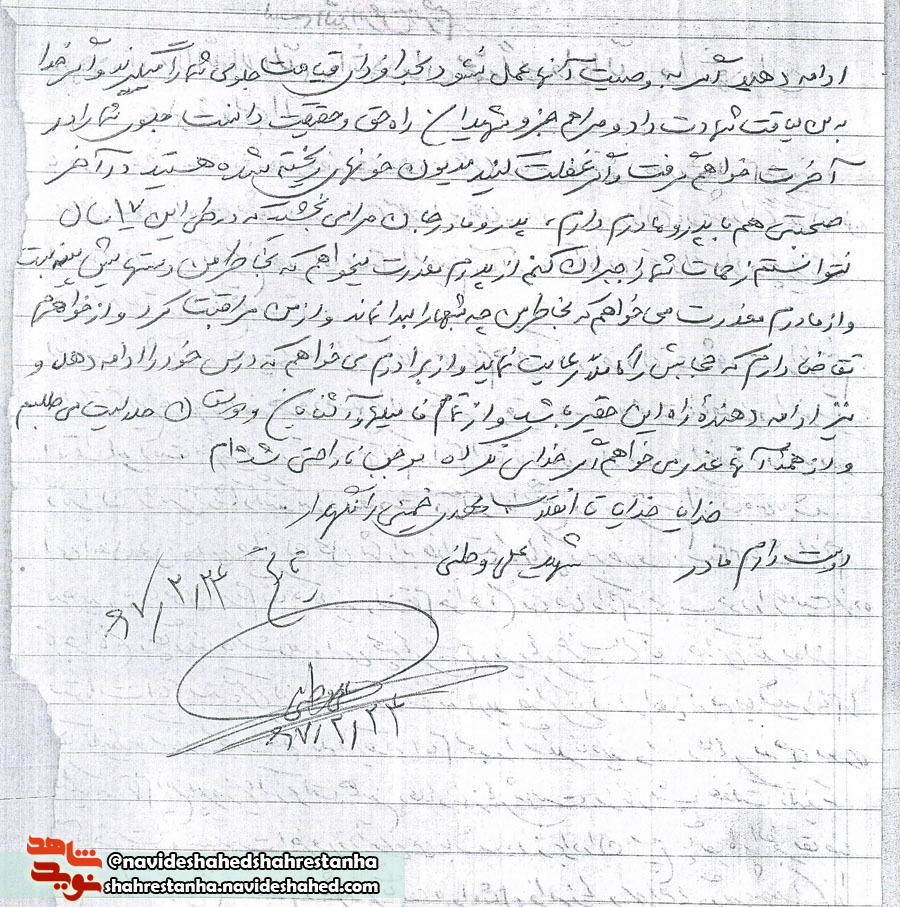 ادامه دهید اگر به وصیت آنها عمل نشود بخدا فردای قیامت جلوی شما را میگیرند و اگر خدا
به من لیاقت شهادت داد و مرا هم جزو شهیدان راه حق و حقیقت دانست جلوی شما را در
آخرت خواهم گرفت و اگر غفلت کنید مدیون خونهای ریخته شده هستید در آخر
صحبتی هم با پدر و مادرم دارم، پدر و مادر جان مرا می بخشید که در طی این ۱۷ سال
نتوانستم زحمات شما را جبران کنم از پدرم معذرت میخواهم که بخاطر من دستهایش پینه بست
و از مادرم معذرت می خواهم که بخاطر من چه شبها بیدار ماند و از من مراقبت کرد و از خواهرم
تقاضا دارم که حجابش را کاملا رعایت نماید و از برادرم می خواهم که درس خود را ادامه دهد و
نیز ادامه دهندهٔ راه این حقیر باشد و از تمام فامیل و آشنایان و دوستان حلالیت می طلبم
و از همهٔ آنها عذر می خواهم اگر خدای نکرده موجب ناراحتی شده ام
خدایا خدایا تا انقلاب مهدی خمینی را نگهدار.
دوست دارم مادر شهید علی وطنی
تاریخ ۶۷/۲/۲۴
علی وطنی
۶۷/۲/۲۴
شاهد
نوید
@navideshahedshahrestanha
shahrestanha.navideshahed.com